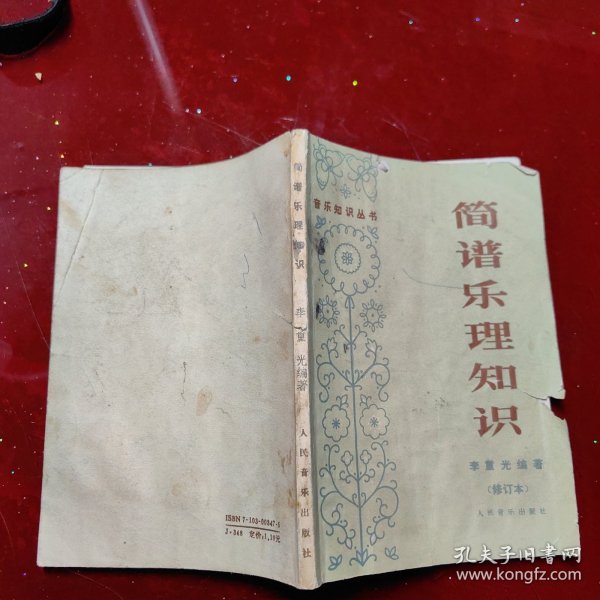 音乐知识丛书
简谱乐理知识
李重光编著
(修订本)
人民音乐出版社
简谱乐理知识
李重光编著
人民音乐出版社
ISBN 7-103-00347-5
J·348 定价:1.10元
孔夫子旧书网
www.kongfz.com